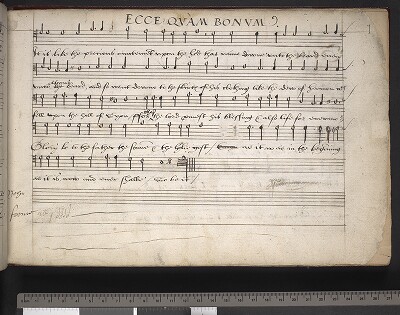 ECCE QVAM BONVM
It is like the precious oyntment upon the hed that ranne downe unto the beard even
unto Aarons beard, and so went downe to the skirts of his clothing like the dew of hermon wch
fell upon the hill of Syon For there the lord promist his blessing & also life for
Glorie be to the father the sonne & the holie gost / as it was in the beginning
as it is nowe and ever shalbe / So be it /